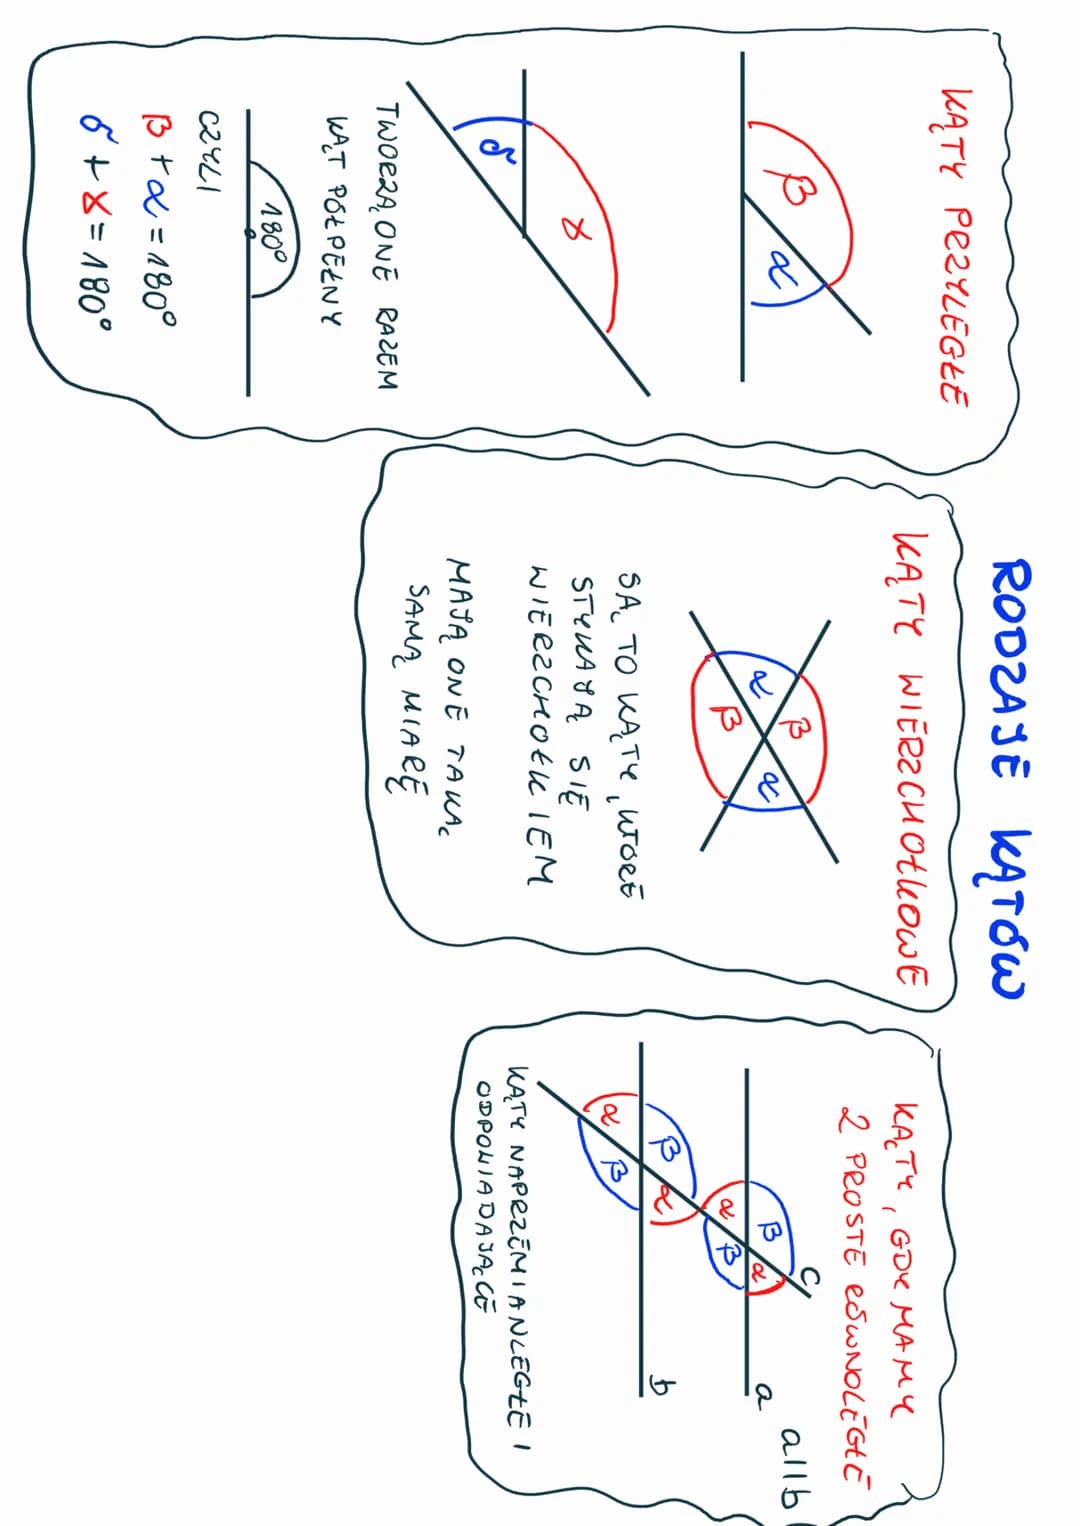 RODZAJE KĄTÓW
KĄTY PRZYLEGŁE
β
α
γ
δ
TWORZĄ ONE RAZEM
KĄT PÓŁPEŁNY
180°
CZYLI
β + α = 180°
δ + γ = 180°
KĄTY WIERZCHOŁKOWE
β
α
α
β
SĄ TO KĄTY, KTÓRE
STYKAJĄ SIĘ
WIERZCHOŁKIEM
MAJĄ ONE TAKĄ
SAMĄ MIARĘ
KĄTY, GDY MAMY
2 PROSTE RÓWNOLEGŁE
a||b
c
β
α
a
α
β
β
α
b
α
β
KĄTY NAPRZEMIANLEGŁE I
ODPOWIADAJĄCE